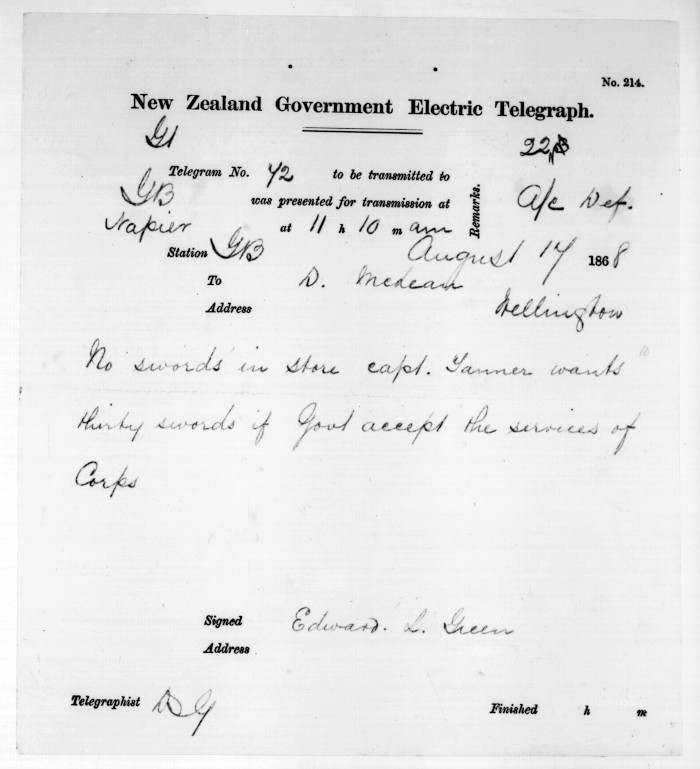 No. 214.
New Zealand Government Electric Telegraph.
22
Telegram No. 42 to be transmitted to
GB
was presented for transmission at
Remarks.
A/c Def.
Napier
at 11 h 10 m am
Station GB
August 17 1868
To D. McLean
Address Wellington
No swords in store capt. Tanner wants
thirty swords if Govt accept the services of
Corps
Signed Edward. L. Green
Address
Telegraphist
Finished h m